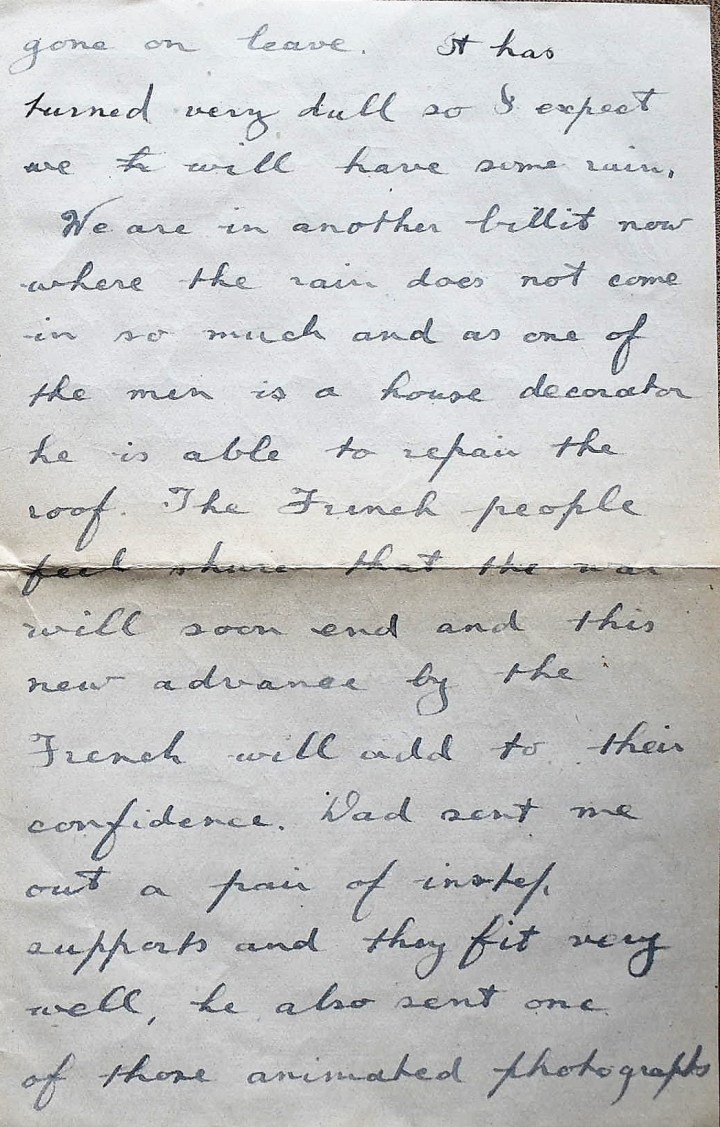 gone on leave. It has
turned very dull so I expect
we th will have some rain,
We are in another billit now
where the rain does not come
in so much and as one of
the men is a house decorator
he is able to repair the
roof. The French people
feel shure that the war
will soon end and this
new advance by the
French will add to their
confidence. Dad sent me
out a pair of instep,
supports and they fit very
well, he also sent one
of those animated photographs